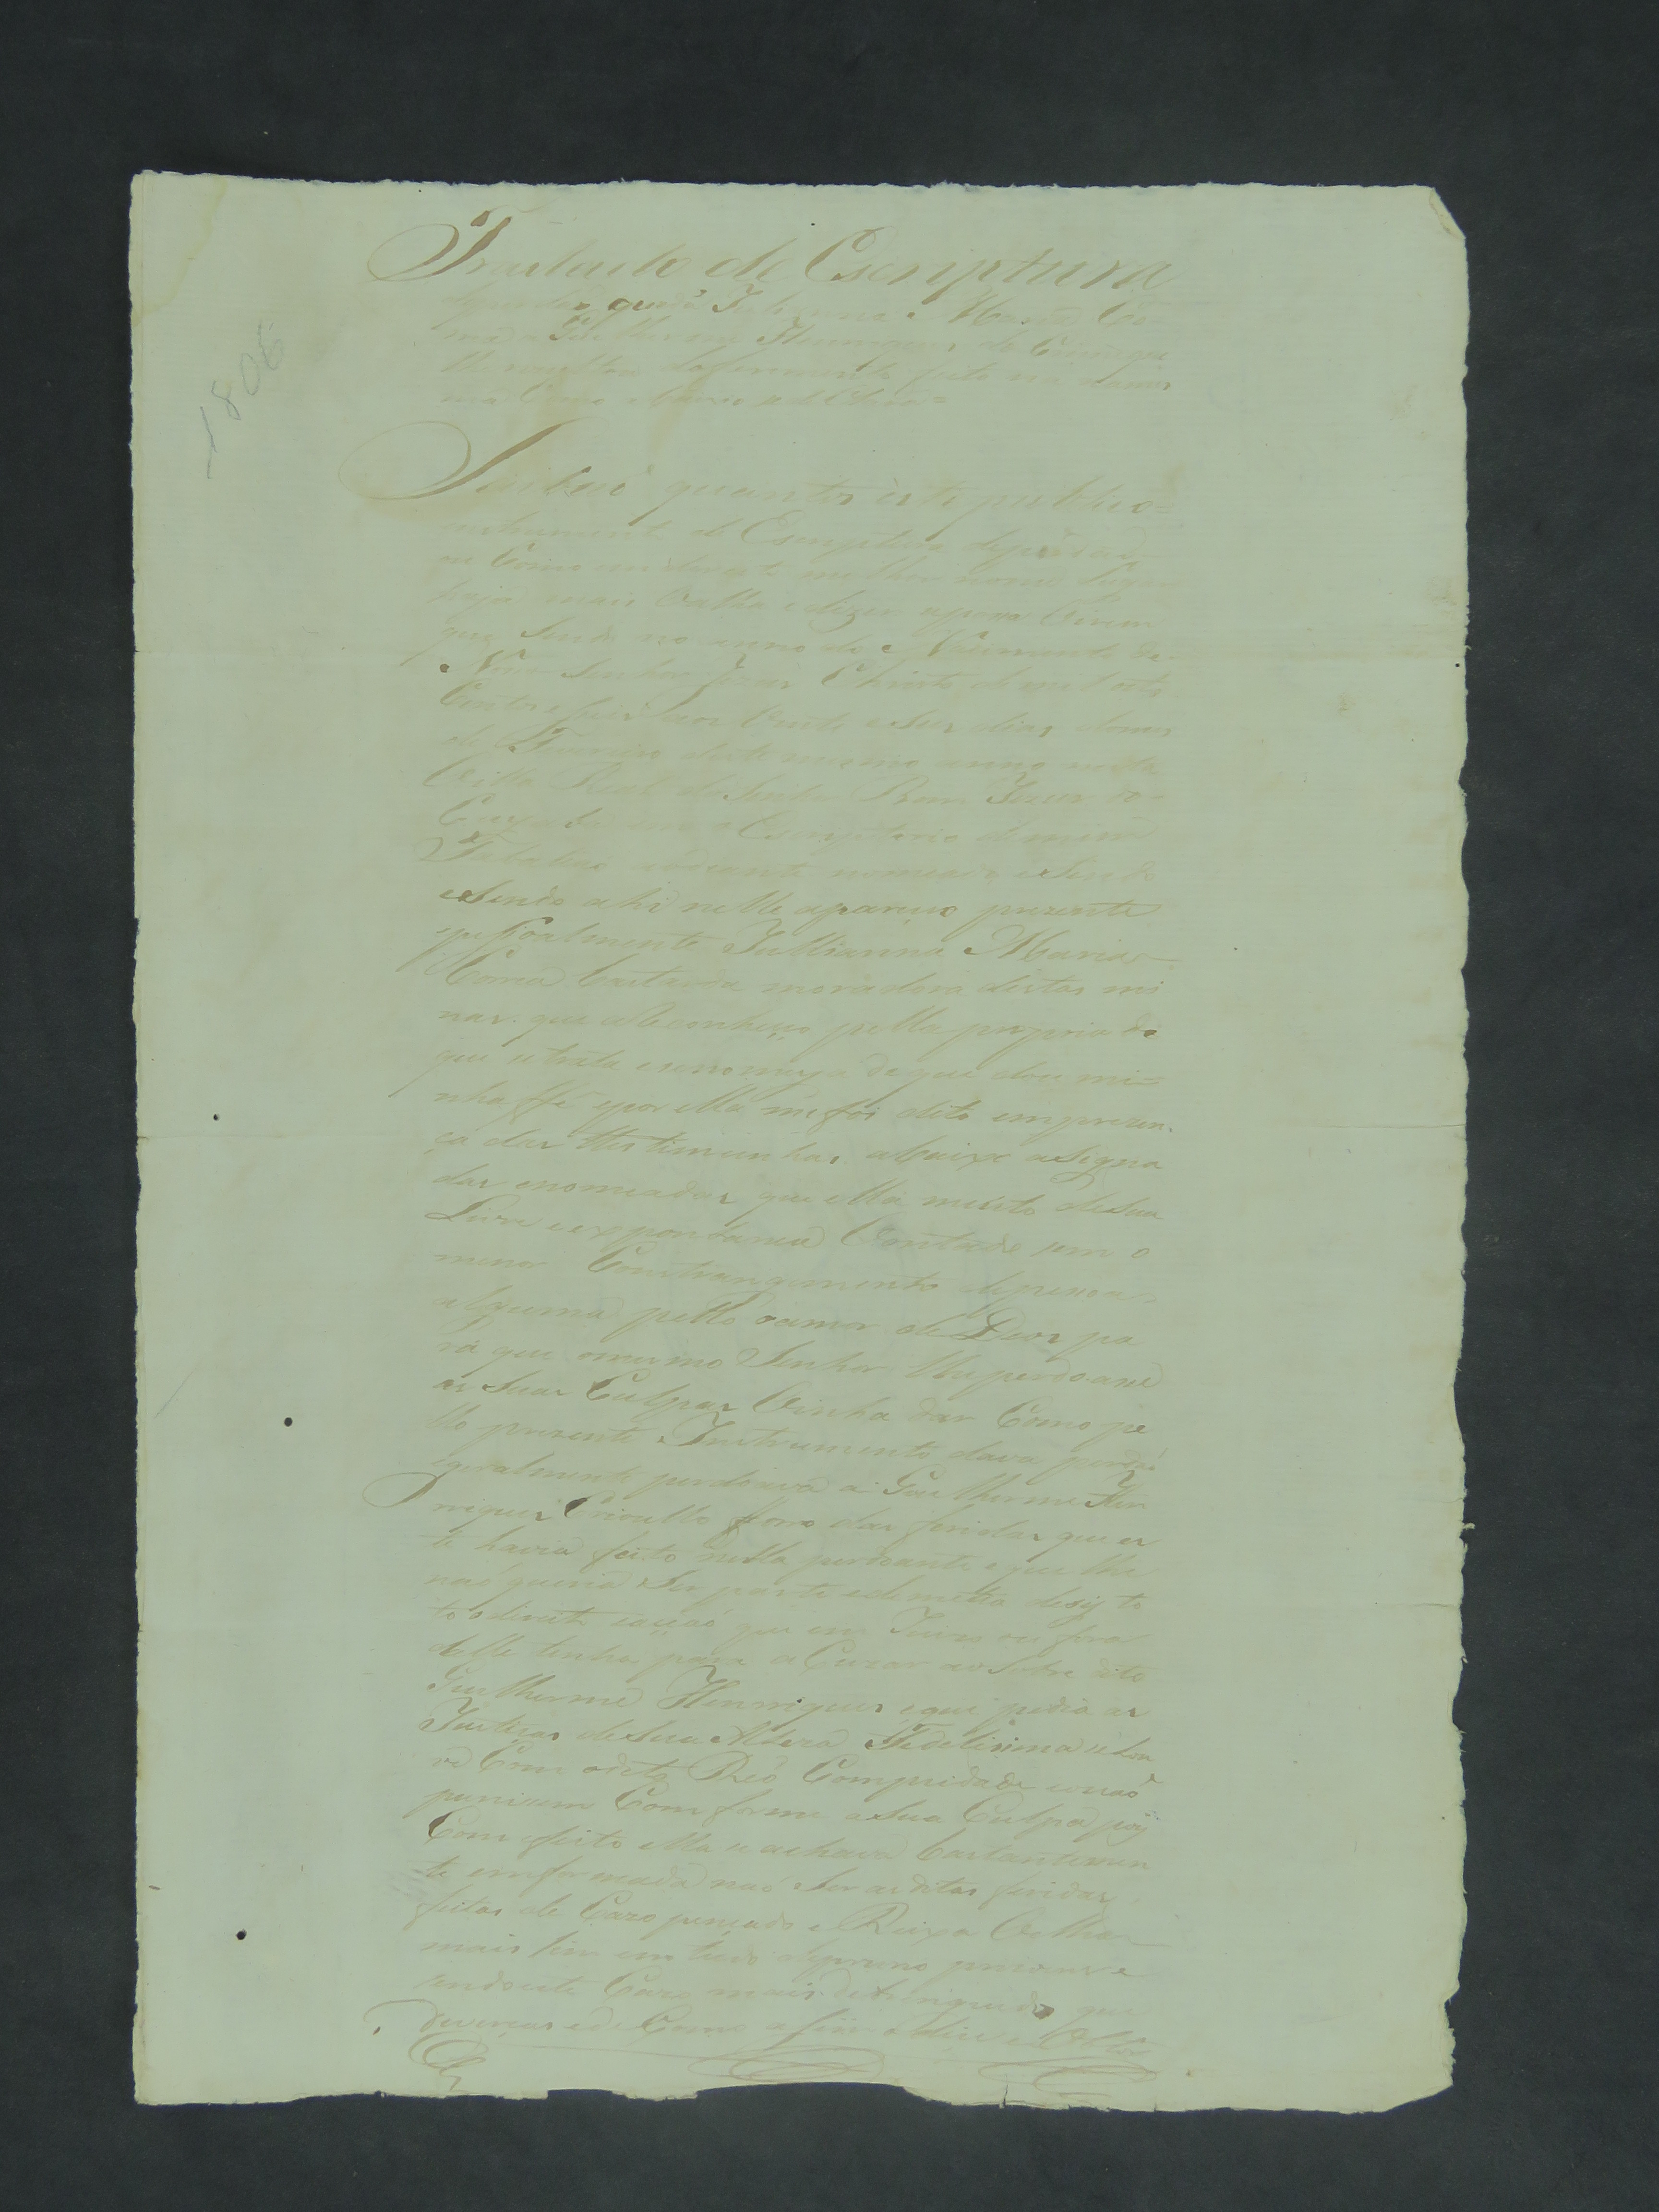 Traslado de Escriptura
de perdaõ que dá Julianna Maria Co-
rrea a Guilherme Henriques do Crime que
lhe rezultou do ferimento feito na mesma
1806
Saibaõ quantos este publico=
instrumento de Escriptura de perdaõ
ou Como em direito melhor nome Lugar
haja mais Valha e dizer se possa Virem
que Sendo no anno do Nascimento de
Nosso Senhor Jezus Christo de mil oito
Centos e seis aos Vinte e Seis dias do mes
de Fevereiro deste mesmo anno nesta
Villa Real do Senhor Bom Jezus do
Cuyaba em o Escriptorio de mim
Tabaliaõ ao diante nomeado e Sendo
e Sendo ahi nelle apareceo prezente
pessoalmente Jullianna Maria
Correa bastarda moradora destas mi
nas que a Reconheço pella propria do
que se trata e se nomeya de que dou mi=
nha ffé e por ella me foi dito em prezen-
ça das testemunhas abaixo aSigna
das e nomeadas que ella muito de Sua
Livre e expontanea Vontade sem o
menor Constrangimento de pessoa
alguma pello o amor de Deos pa
ra que o mesmo Senhor lhe perdoase
as Suas Culpas Vinha dar Como pe
llo prezente Instrumento dava perdaõ
e geralmente perdoava a Guilherme Hen
riques Crioullo fforro das feridas que es
te havia feito nella perdoante e que lhe
naõ queria Ser parte e demetia de sy to
to o direito e acçaõ que em Juizo ou fora
delle tenha para aCuzar ao Sobre dito
Guilherme Henriques e que pedia as
Justiças de Sua Alteza Fidelissima se hou
ve Com o dito Reo Com piedade e o naõ
punisem Comforme a Sua Culpa poiz
Com efeito ella se achava bastantemen
te emformada naõ Ser as ditas feridas
feitas de Cazo pençado e Reixa Velha
mais sim em
sendo este Cazo mais de que
de Como a sim o dice e